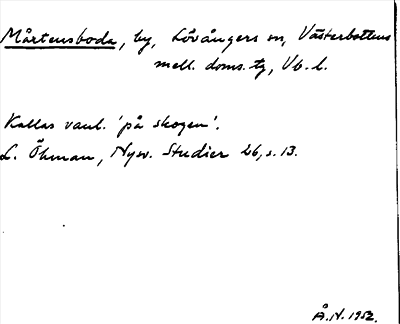 Mårtensboda, by, Lövångers sn, Västerbottens
mell. doms. tg, Vb. l.
Kallas vanl. 'på skogen'.
L. Öhman, Nysv. Studier 26, s. 13.
Å.N. 1952.